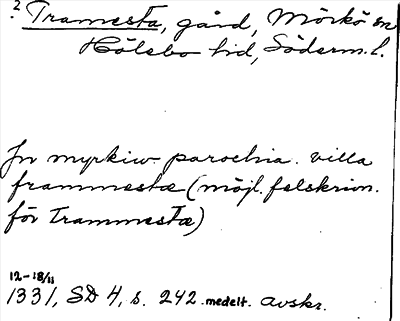 ? Tramesta, gård, Mörkö sn
Hölebo hd, Söderm. l.
Jn myrkiw parochia. villa
frammestæ (möjl. felskrivn.
för Trammestæ)
12-18/11
1331, SD 4, s. 242. medelt. avskr.